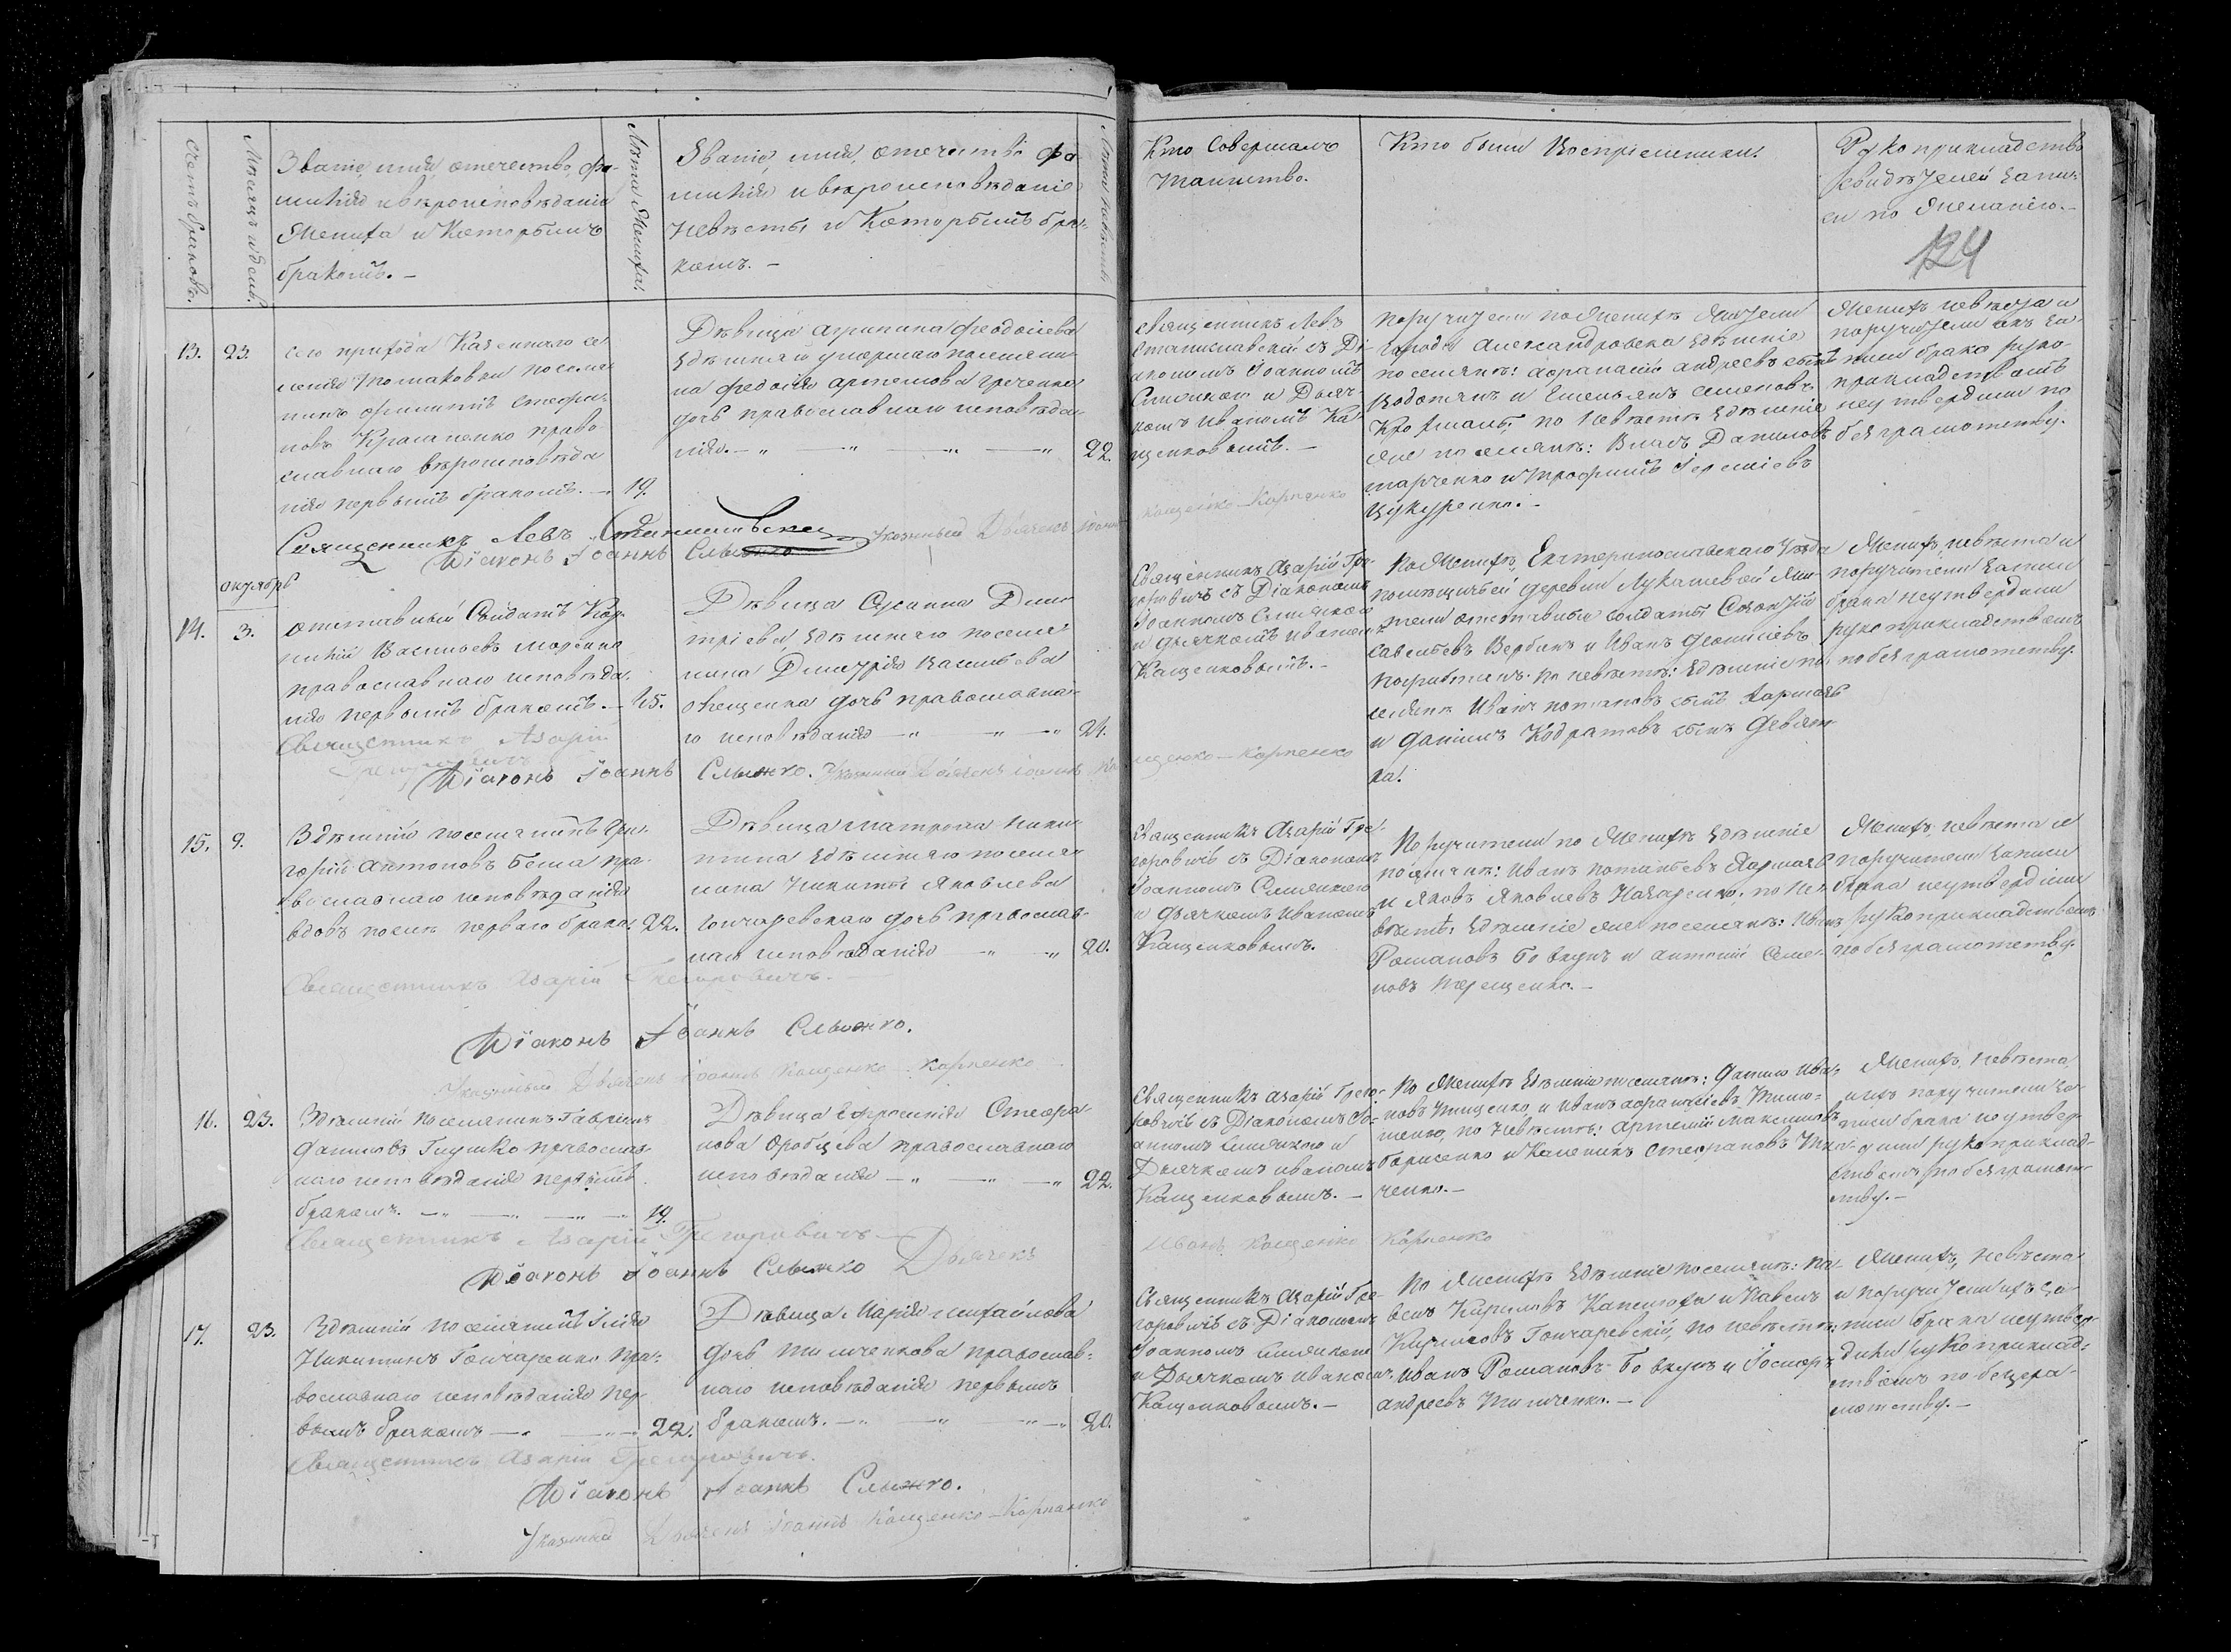 Счетъ браковъ.
Мѣсяцъ и день.
Званіе, имя, отечество, фа-
милія и вѣроисповѣданіе
Жениха и Которымъ
бракомъ. —
Лѣта Жениха.
Званіе, имя, отечество фа-
милія и вѣроисповѣданіе
Невѣсты и Которымъ бра-
комъ. —
Лѣта Невѣсты
Кто Совершалъ
Таинство.
Кто были Воспріемники.
Рукоприкладство
свидѣтелей Запи-
си по Желанію. —
124
13.
23.
сего прихода Казеннаго се
ленія Томаковки поселя
нинъ Филиппъ Стефа
новъ право
славнаго вѣроисповѣда
нія первымъ бракомъ. —
19.
Дѣвица Агрипина Феодосіева
здѣшняго умершаго поселяни
на Федосія Артемова Гученка
дочь православнаго исповѣда
нія. —
22.
Священникъ Левъ
Станиславскій съ Ді-
акономъ Іоанномъ
и Дьяч-
комъ Иваномъ Ка-
щенковымъ. —
Поручители по Женихѣ Жители
города Александровска здѣшніе
поселяне: Афанасій Андреевъ сынъ
и Емельянъ Семеновъ
по Невѣстѣ здѣшніе
же поселяне: Власъ Даниловъ
и Трофимъ
Цукуренко. —
Женихъ невѣста и
поручители ихъ за
писи брака руко-
прикладствомъ
неутвердили по
безграмотству.
Священникъ Левъ Станиславскій Указный Дьячекъ Іоаннъ
Кащенко-Карпенко
Діаконъ Іоаннъ Слынко
Октябрь
14.
3.
Отставный Солдатъ Кор-
нилій Васильевъ
православнаго исповѣда-
нія первымъ бракомъ. —
45.
Дѣвица Сусанна Дми
тріева, здѣшняго поселя
нина Димитрія Васильева
дочь православна-
го исповѣданія —
21.
Священникъ Азарій Гри-
горовичъ съ Діакономъ
Іоанномъ
и Дьячкомъ Иваномъ
Кащенковымъ. —
По Женихѣ, Екатеринославскаго Уѣзда
помѣщичьей деревни Лукашевой Жи-
тели отставные солдаты
Савельевъ Вербинъ и Иванъ
по невѣстѣ: здѣшніе по
селяне Иванъ Потаповъ сынъ
и Даніилъ Кодратовъ сынъ Девят
ка.
Женихъ, невѣста и
поручители записи
брака неутвердили
рукоприкладствомъ
по безграмотству.
Священникъ Азарій
Грегоровичъ
Діаконъ Іоаннъ Слынко. Указный Дьячекъ Іоаннъ Ка
щенко-Карпенко
15.
9.
Здѣшній поселянинъ Гри-
горій Антоновъ Беша пра-
вославнаго исповѣданія
вдовъ послѣ перваго брака.
22.
Дѣвица Матрона Ники
тина здѣшняго поселя
нина Никиты Яковлева
Гончаревскаго дочь православ-
наго исповѣданія —
20.
Священникъ Азарій Гре-
горовичъ съ Діакономъ
Іоанномъ
и Дьячкомъ Иваномъ
Кащенковымъ.
Поручители по Женихѣ здѣшніе
поселяне: Иванъ Потаповъ
и Яковъ Яковлевъ Назаренко, по Не-
вѣстѣ: здѣшніе же поселяне: Иванъ
Романовъ Бовкунъ и Антоній Семе-
новъ Терещенко. —
Женихъ, невѣста и
поручители записи
брака неутвердили
рукоприкладствомъ
по безграмотству.
Священникъ Азарій Грегоровичъ. —
Діаконъ Іоаннъ Слынко.
Указный Дьячекъ Іоаннъ Кащенко-Карпенко
16.
23.
Здѣшній поселянинъ Гавріилъ
Даниловъ Глушко православ-
наго исповѣданія первымъ
бракомъ. —
19.
Дѣвица Ефросинія Стефа-
нова Оробцева православнаго
исповѣданія —
22.
Священникъ Азарій Грего-
ровичъ съ Діакономъ Іо-
анномъ и
Дьячкомъ Иваномъ
Кащенковымъ. —
По Женихѣ здѣшніе поселяне: Данило Ива-
новъ Тищенко, и Иванъ Афанасіевъ Тимо-
шенко, по Невѣстѣ: Артемій Максимовъ
Борисенко и Каленикъ Стефановъ
ченко. —
Женихъ, невѣста,
ихъ поручители за-
писи брака неутвер-
дили рукоприклад-
ствомъ по безграмот-
ству. —
Священникъ Азарій Грегоровичъ
Діаконъ Іоаннъ Слынко Дьячекъ
Иванъ Кащенко Карпенко
17.
23.
Здѣшній поселянинъ Илія
Никитинъ Гончаренко пра-
вославнаго исповѣданія пер-
вымъ бракомъ —
22.
Дѣвица Марія Михайлова
дочь Тимченкова православ-
наго исповѣданія первымъ
бракомъ. —
20.
Священникъ Азарій Гре-
горовичъ съ Діакономъ
Іоанномъ
и Дьячкомъ Иваномъ
Кащенковымъ. —
По Женихѣ здѣшніе поселяне: Па-
велъ Кириловъ и Павелъ
Кириловъ Гончаревскій, по невѣстѣ:
Иванъ Романовъ Бовкунъ и
Андреевъ Тимченко. —
Женихъ, невѣста
и поручители ихъ за-
писи брака неутвер-
дили рукоприклад-
ствомъ по безгра-
мотству. —
Священникъ Азарій Грегоровичъ.
Діаконъ Іоаннъ Слынко.
Указный Дьячекъ Іоаннъ Кащенко-Карпенко